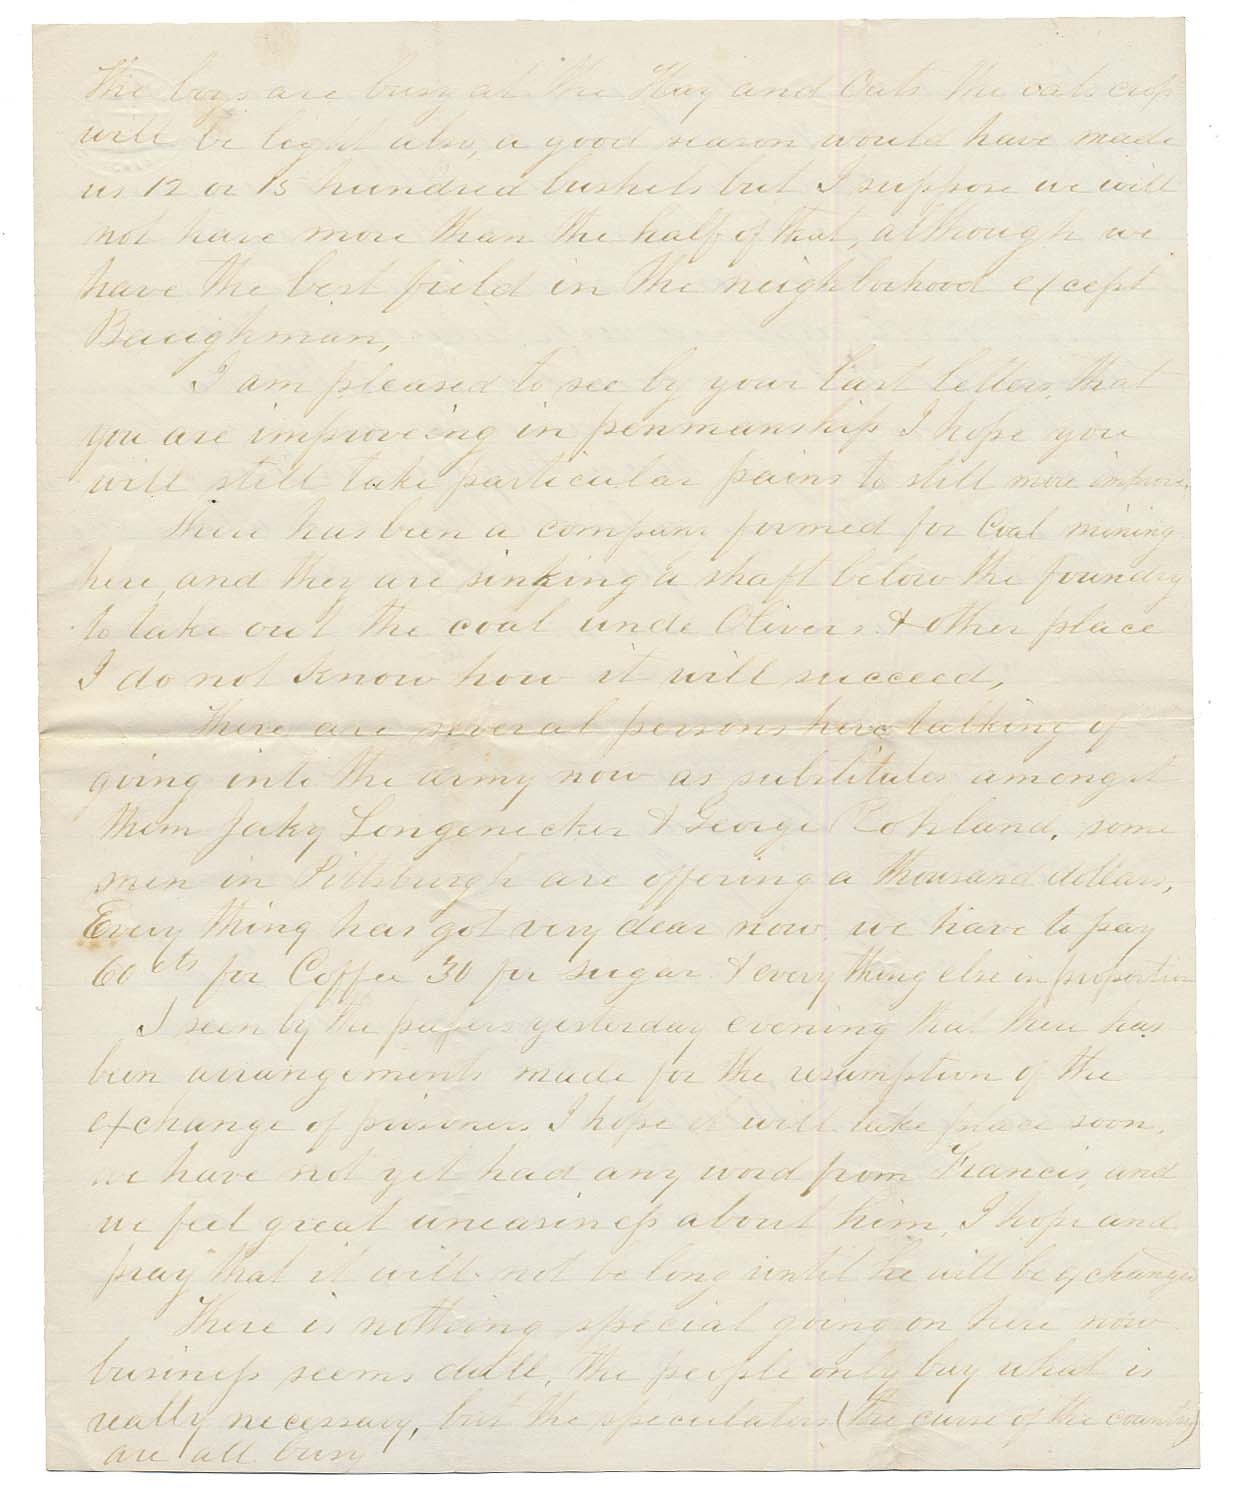 The boys are busy at the Hay and Oats the oats crop
will be light also, a good season would have made
us 12 or 15 hundred bushels but I suppose we will
not have more than the half of that, although we
have the best field in the neighborhood except
Baughman,
I am pleased to see by your last letters, that
you are improveing in penmanship I hope you
will still take particular pains to still more improve,
There has been a company formed for Coal mining
here, and they are sinking a shaft below the foundry
to take out the coal unde Olivers & other place
I do not know how it will succeed,
There are several persons here talking of
going into the army now as substitutes amongst
them Jaky Longenecker & George Rohland, some
men in Pittsburgh are offering a thousand dollars,
Every thing has got very dear now we have to pay
60 cts for Coffee 30 for sugar & every thing else in proportion
I seen by the papers yesterday evening that there has
been arrangements made for the resumption of the
exchange of prisoners I hope it will take place soon,
we have not yet had any word from Francis, and
we feel great uneasiness about him, I hope and
pray that it will not be long until he will be exchanged
There is nothing special going on here now
business seems dull, the people only buy what is
really necessary, but the speculators (the curse of the country)
are all busy